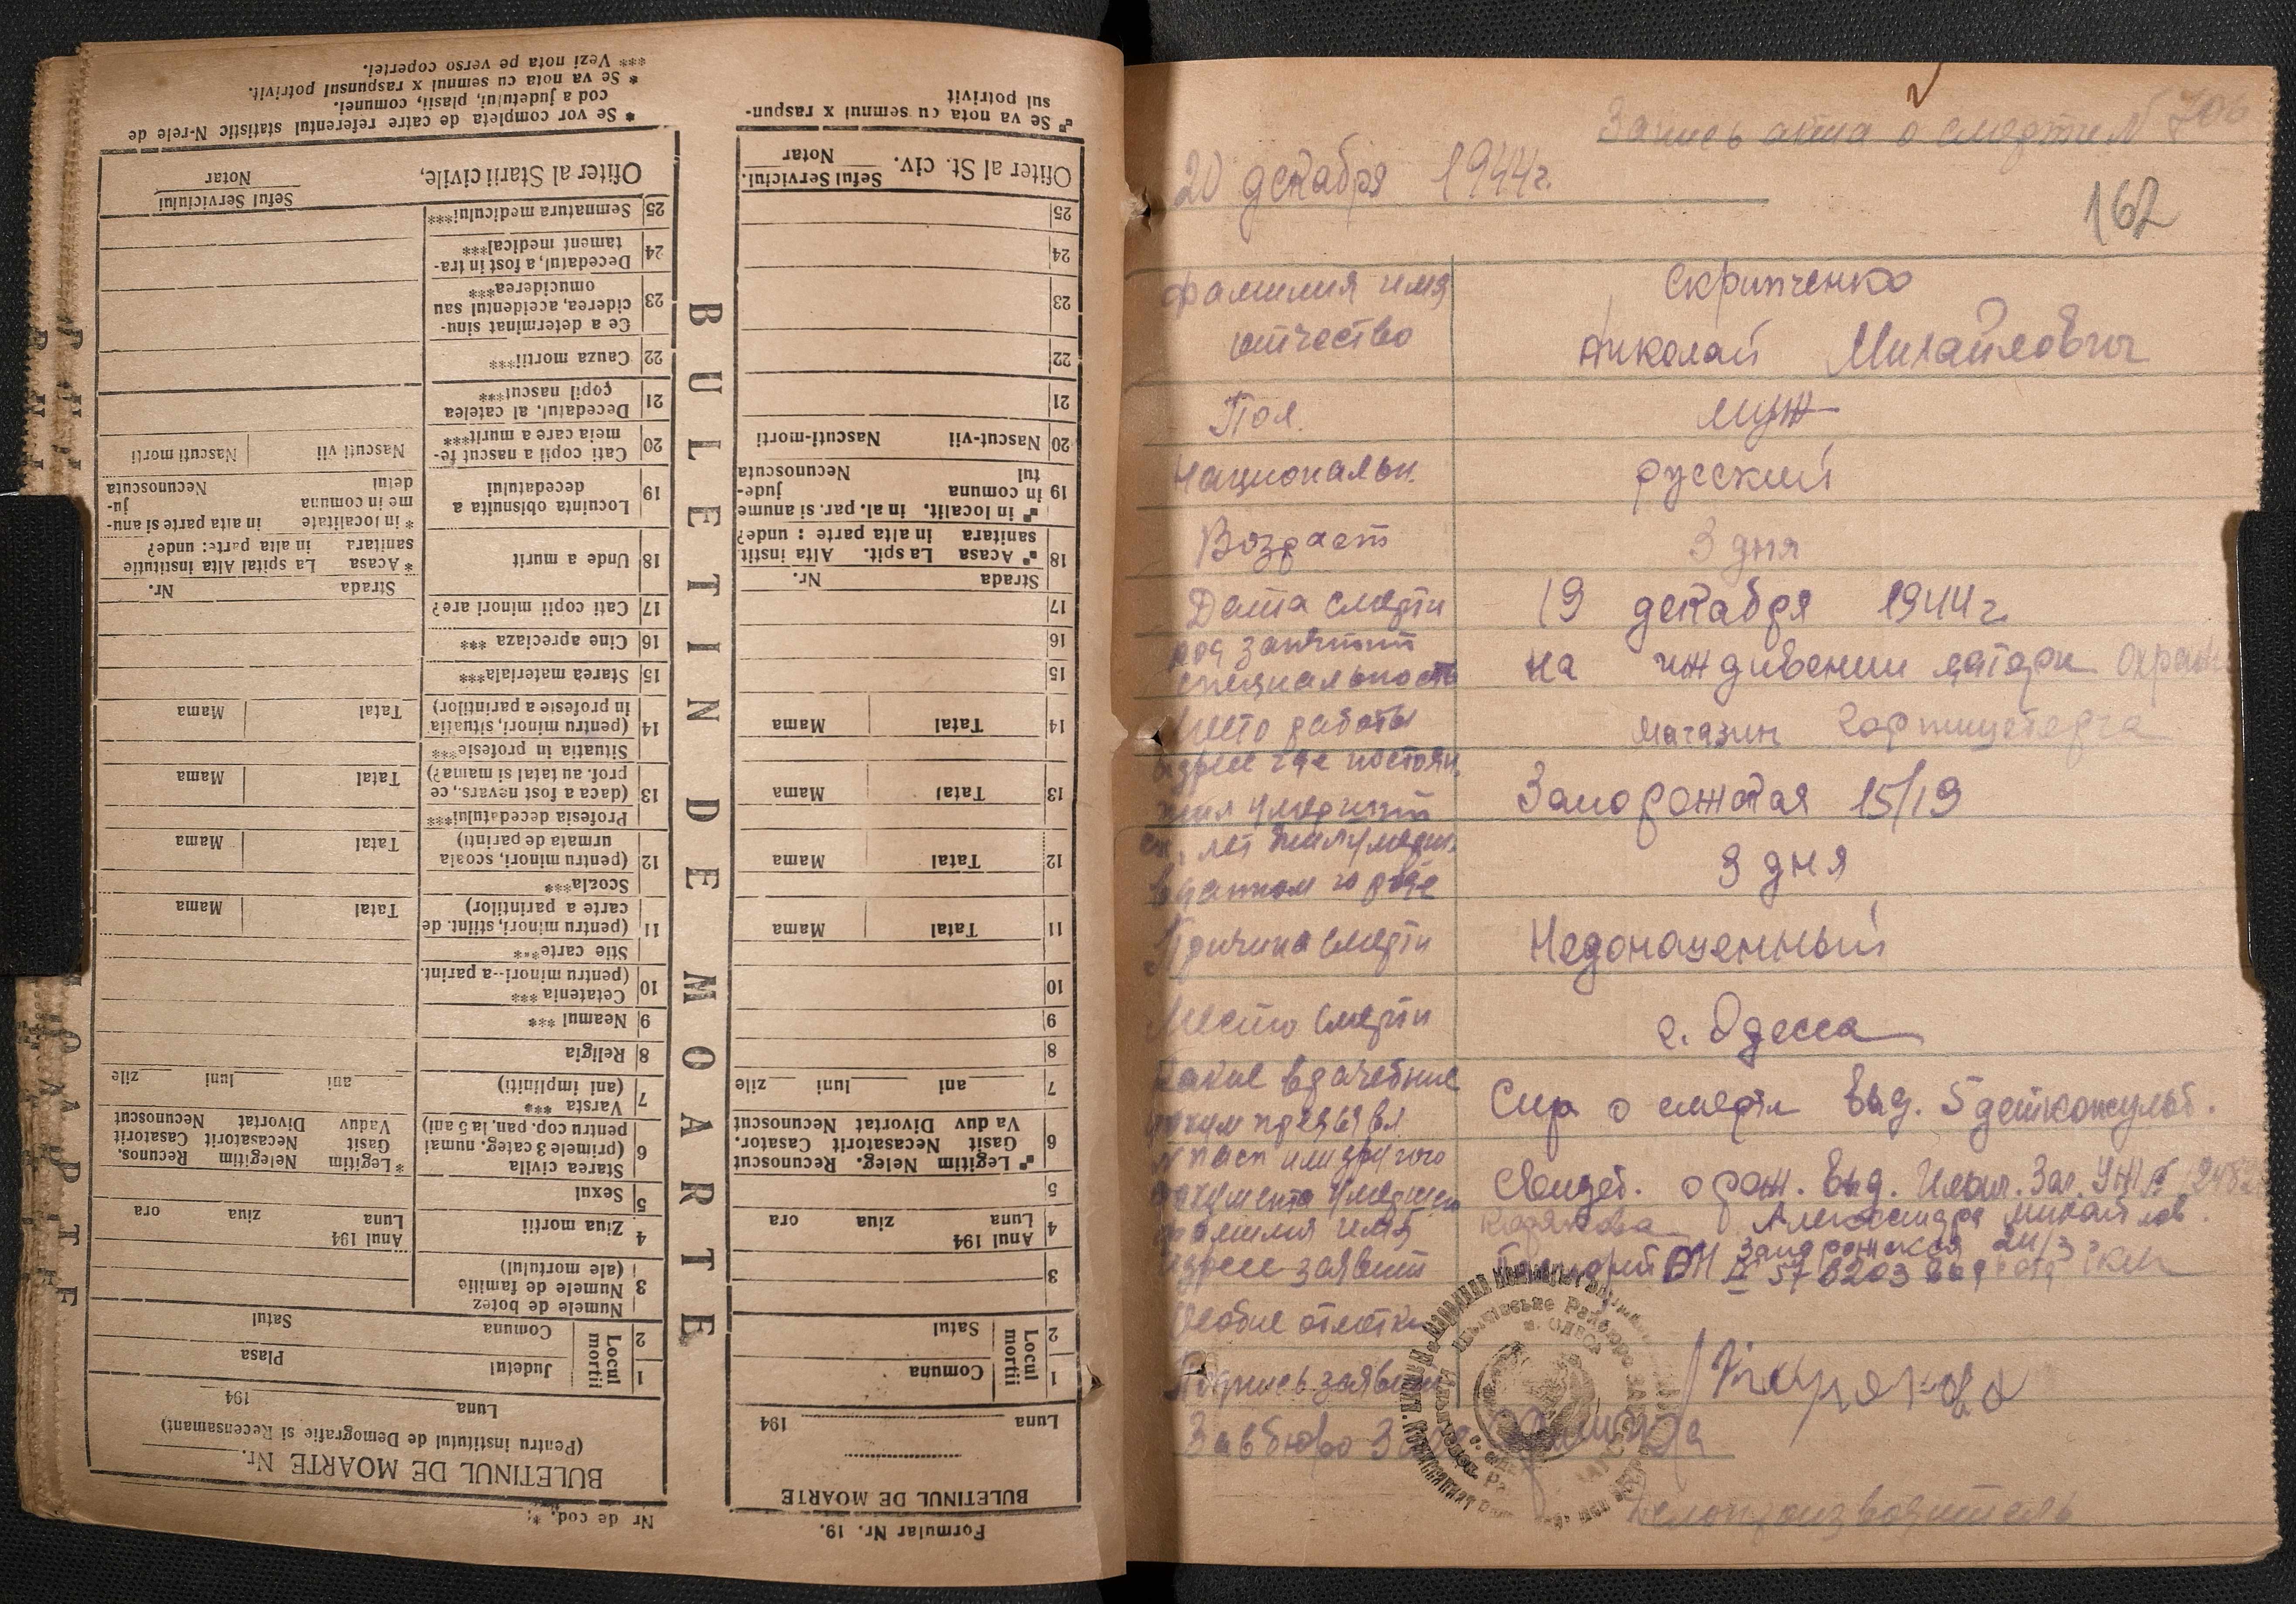 * Se vor completa de catre referentul statistic N-rele de
cod a judetului, plasii, comunei.
* Se va nota cu semnul x raspunsul potrivit.
*** Vezi nota pe verso copertei.
Nr de cod. *
BULETINUL DE MOARTE Nr.
(Pentru institutul de Demografie si Recensamant)
Luna 194
1 Locul mortii Judetul Plasa
2 Comuna Satul
3 Numele de botez
Numele de familie
(ale mortului)
4 Ziua mortii Anul 194
Luna ziua ora
5 Sexul
6 Starea civila
(primele 3 categ. numai
pentru cop. pan. la 5 ani)
* Legitim Nelegitim Recunos.
Gasit Necasatorit Casatorit
Vaduv Divortat Necunoscut
7 Varsta ***
(ani impliniti) ani luni zile
8 Religia
9 Neamul ***
10 Cetatenia ***
(pentru minori--a parint.
11 Stie carte***
(pentru minori, stiint. de
carte a parintilor) Tatal Mama
12 Scoala***
(pentru minori, scoala
urmata de parinti) Tatal Mama
13 Profesia decedatului***
(daca a fost nevars., ce
prof. au tatal si mama?) Tatal Mama
14 Situatia in profesie***
(pentru minori, situatia
in profesie a parintilor) Tatal Mama
15 Starea materiala***
16 Cine apreciaza ***
17 Cati copii minori are?
18 Unde a murit
Strada Nr.
* Acasa La spital Alta institutie
sanitara in alta parte: unde?
19 Locuinta obisnuita a
decedatului
* in localitate in alta parte si anu-
me in comuna ju-
detul Necunoscuta
20 Cati copii a nascut fe-
meia care a murit***
Nascuti vii Nascuti morti
21 Decedatul. al catelea
copil nascut***
22 Cauza mortii***
23 Ce a determinat sinu-
ciderea, accidentul sau
omuciderea***
24 Decedatul, a fost in tra-
tament medical***
25 Semnatura medicului***
Ofiter al Starii civile, Seful Serviciului
Notar
BULETIN DE MOARTE
Formular Nr. 19.
BULETINUL DE MOARTE
Luna 194
1 Locul mortii Comuna
2 Satul
3
4 Anul 194
Luna ziua ora
5
6 Legitim Neleg. Recunoscut
Gasit Necasatorit Casator.
Va duv Divortat Necunoscut
7 ani luni zile
8
9
10
11 Tatal Mama
12 Tatal Mama
13 Tatal Mama
14 Tatal Mama
15
16
17
Strada Nr.
18 Acasa La spit. Alta instit.
sanitara in alta parte : unde?
19 in localit. in al. par. si anume
in comuna jude-
tul Necunoscuta
20 Nascut-vii Nascuti-morti
21
22
23
24
25
Ofiter al St. civ. Seful Serviciul.
Notar
Se va nota cu semnul x raspun-
sul potrivit
Запись акта о смерти N 706
20 декабря 1944г.
162
фамилия имя Скрипченко
отчество Николай Михайлович
Пол. муж
Национальн. русский
Возраст 3 дня
Дата смерти 19 декабря 1944г.
род занятий
специальность на иждивении матери
Место работы магазин
адрес где постоян.
жил умерший Запорожская 15/19
ск. лет жил умерш.
в данном городе 3 дня
Причина смерти Недоношенный
Место смерти г. Одесса
Какие врачебные
докум предъявл Спр о смерти выд. 5 детконсульт.
N пасп или другого
документа умершего Свидет. о рож. выд. Ильич. Заг.
фамилия имя Александра Михайлов.
адрес заявит Запорожская
Особые отметки
Подпись заявит
Зав бюро Загс
Делопроизводитель